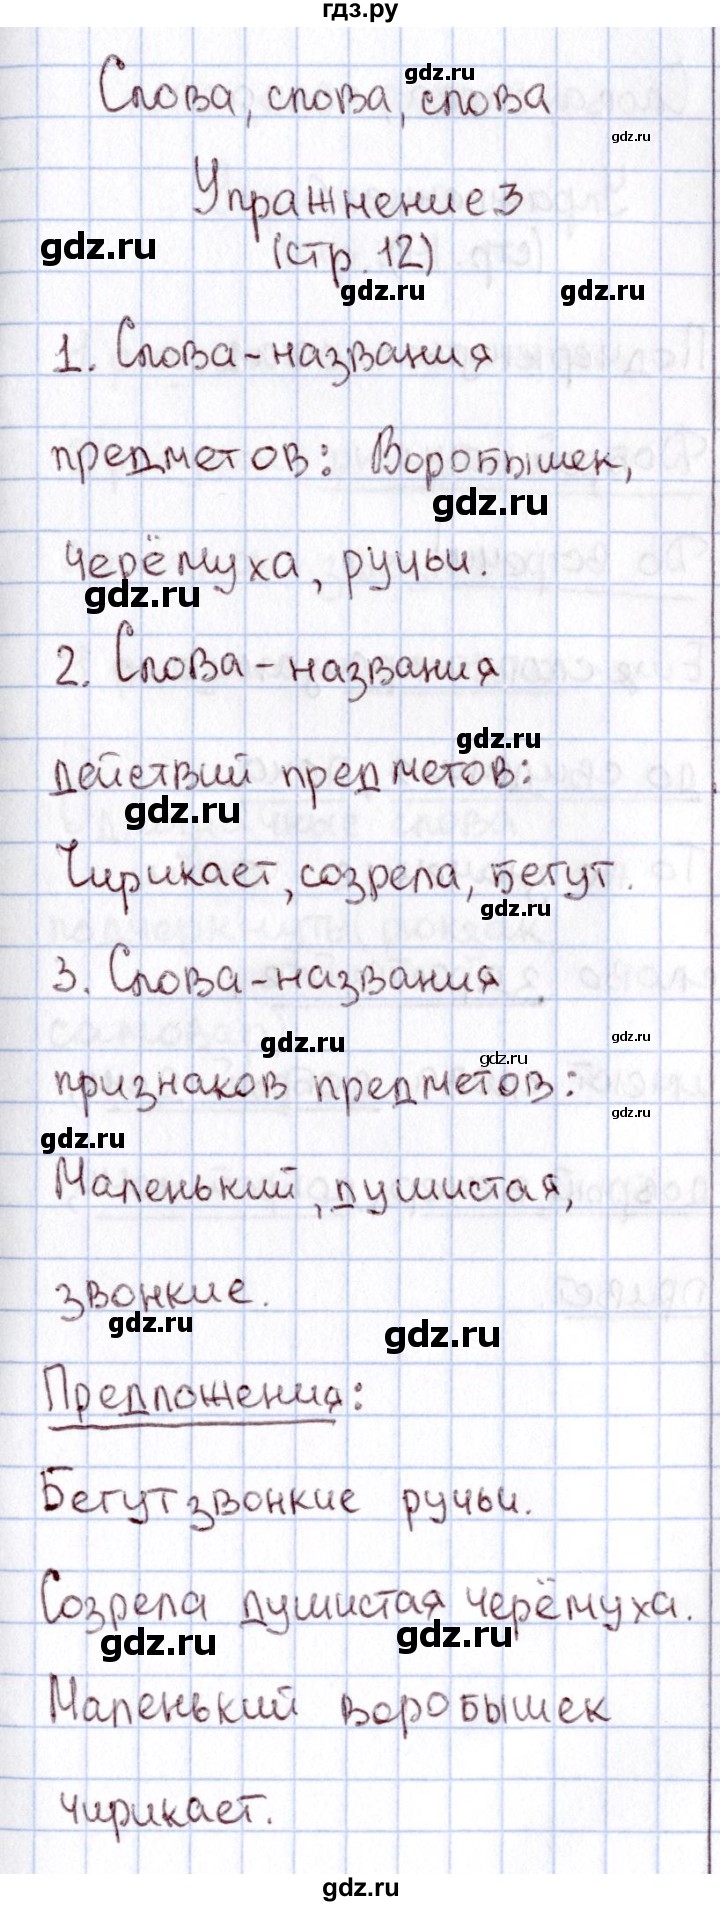 гдз.ру
Слова, слова, слова
gdz.ru
gdz.ru
Упражнение 3
(стр. 12)
gdz.ru
gdz.ru
gdz.ru
1. Слова-названия
предметов: Воробышек,
gdz.ru
черёмуха, ручьи.
gdz.ru
2. Слова-названия
gdz.ru
действий предметов:
gdz.ru
Чирикает, созрела, бегут.
gdz.ru
3. Слова-названия
gdz.ru
gdz.ru
gdz.ru
признаков предметов:
gdz.ru
gdz.ru
Маленький, душистая,
звонкие.
gdz.ru
gdz.ru
Предложения:
Бегут звонкие ручьи.
Созрела душистая черёмуха.
gdz.ru
gdz.ru
Маленький воробышек
чирикает.
gdz.ru